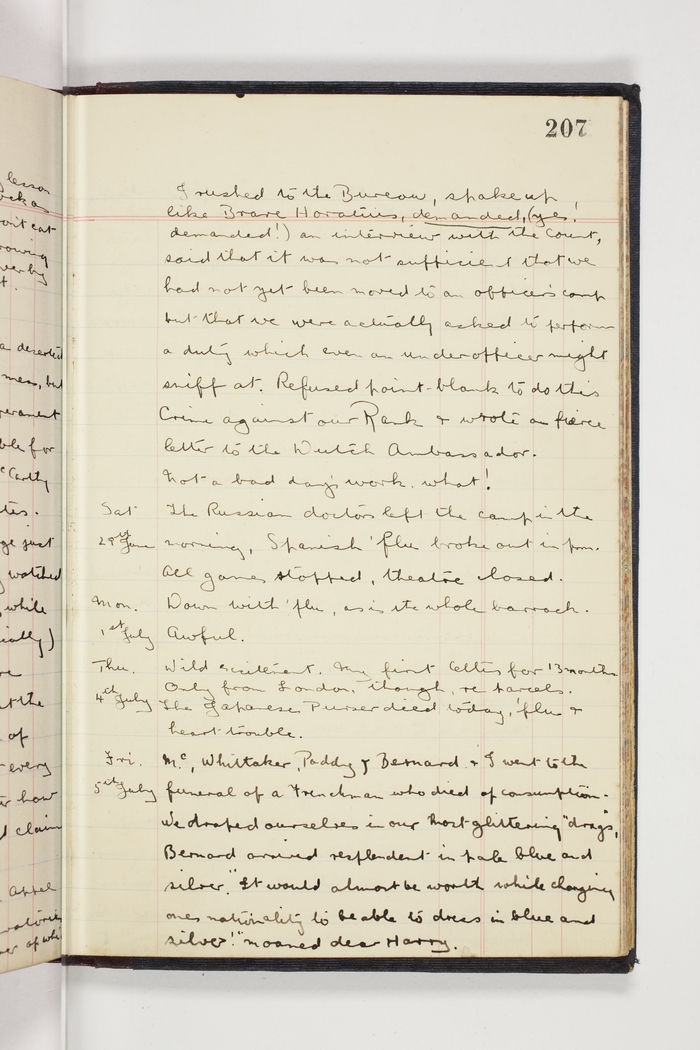 207
I rushed to the Bureau, spake up
like Brave Horatius, demanded, (yes!
demanded!) an interview with the Count,
said that it was not sufficient that we
had not yet been moved to an officer's camp
but that we were actually asked to perform
a duty which even an underofficer might
sniff at. Refused point-blank to do this
Crime against our Rank & wrote a fierce
letter to the Dutch Ambassador.
Not a bad day's work. what!
Sat The Russian doctors left the camp in the
29th June morning, Spanish 'flu broke out in pm.
All games stopped, theatre closed.
Mon. Down with 'flu, as is the whole barrack.
1st July Awful.
Thu. Wild excitement. My first letters for 13 months
Only from London, though, re parcels.
4th July The Japanese Purser died today, 'flu &
heart trouble.
Fri. Mc, Whittaker, Paddy, Bernard & I went to the
5th July funeral of a Frenchman who died of consumption.
We draped ourselves in our "most glittering" drags,
Bernard arrived resplendent in pale blue and
silver. "It would almost be worth while changing
ones nationality to be able to dress in blue and
silver!" moaned dear Harry.